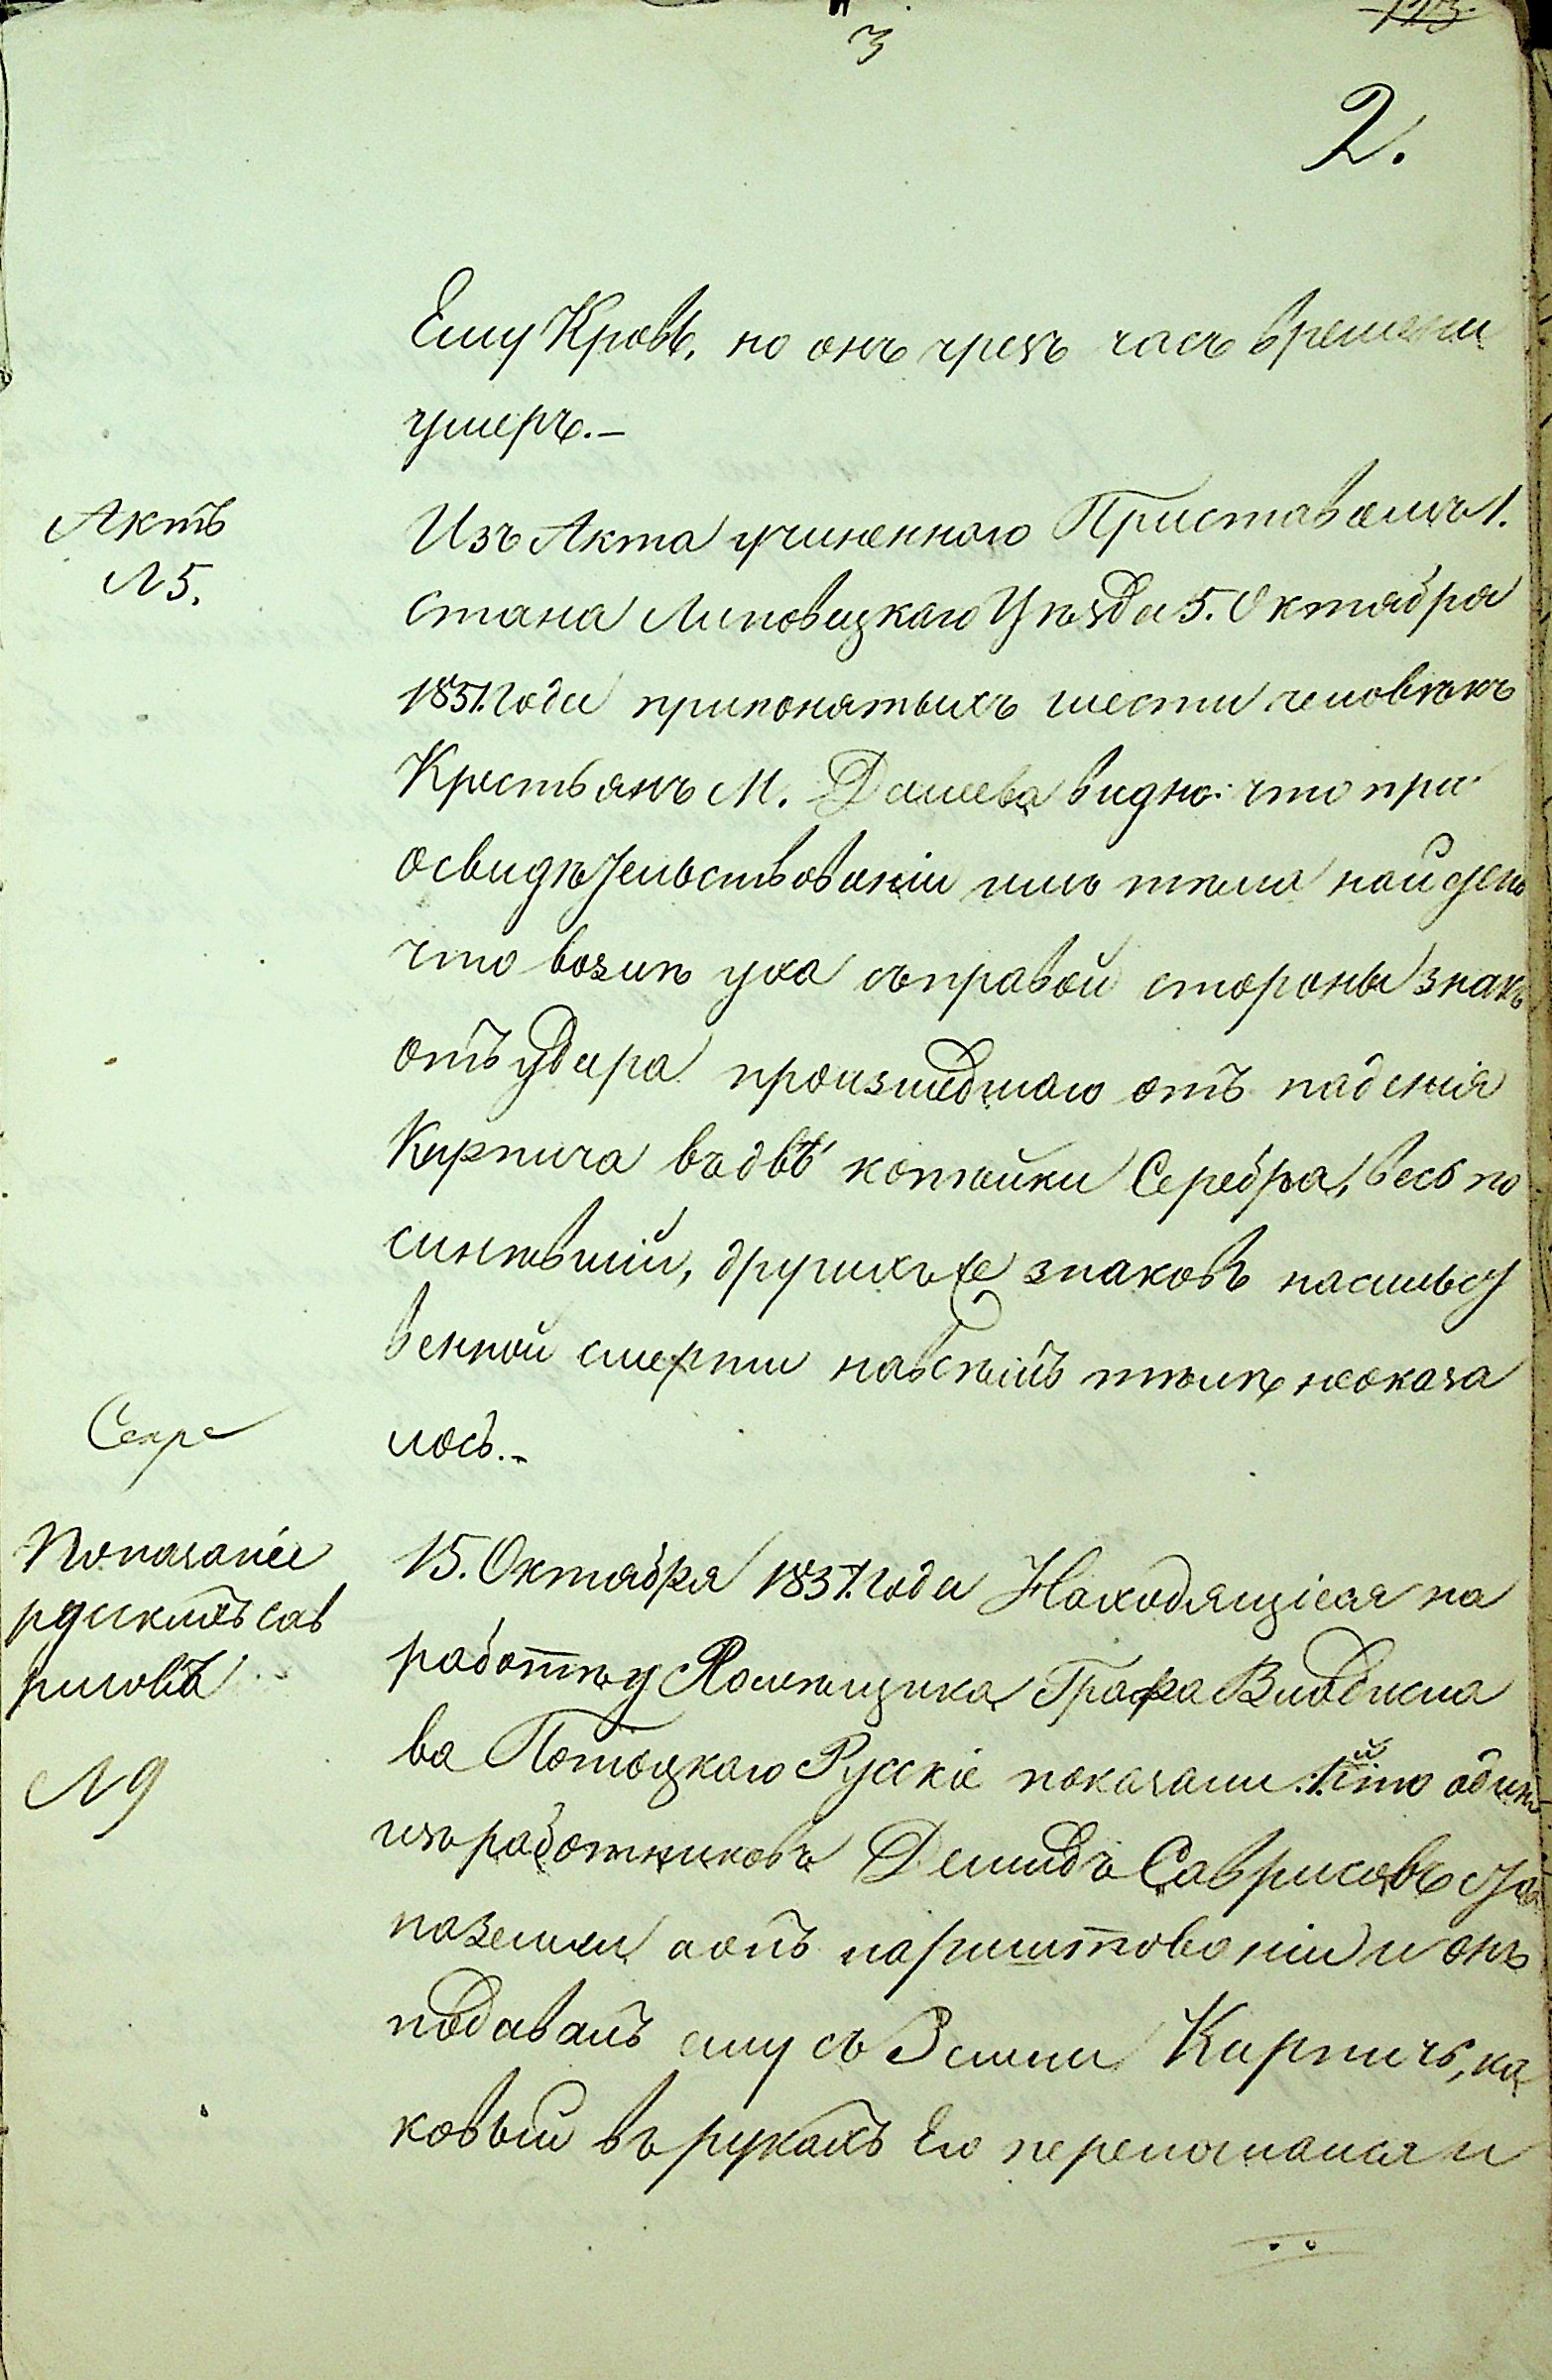 3
123.
2.
Ему Кровь, но онъ чрезъ часъ времени
умеръ.–
Актъ
№ 5.
Изъ Акта учиненнаго Приставомъ 1.
Стана Липовецкаго Уѣзда 5. Октября
1851. года припонятыхъ шести человѣкъ
Крестьянъ М. Дашева видно: что при
освидѣтельствованіи ими тѣла найдено
что возлѣ уха съ правой стороны знакъ
отъ удара произшедшаго отъ паденія
Кирпича въ двѣ копѣйки Серебра, весь по
синѣвшій, другихъ же знаковъ насильст
венной смерти на всѣмъ тѣлѣ неоказа
лось.–
Показаніе
рускихъ сав
рисовъ
№ 9
15. Октября 1851. года Находящіеся на
работѣ у Помѣщика Графа Владисла
ва Потоцкаго Русскіе показали: 1.й что одинъ
изъ работниковъ Демидъ Саврисовъ
на земли а онъ на риштованіи и онъ
подавалъ ему съ Земли Кирпичъ, ка
ковый въ рукахъ Его переломался и